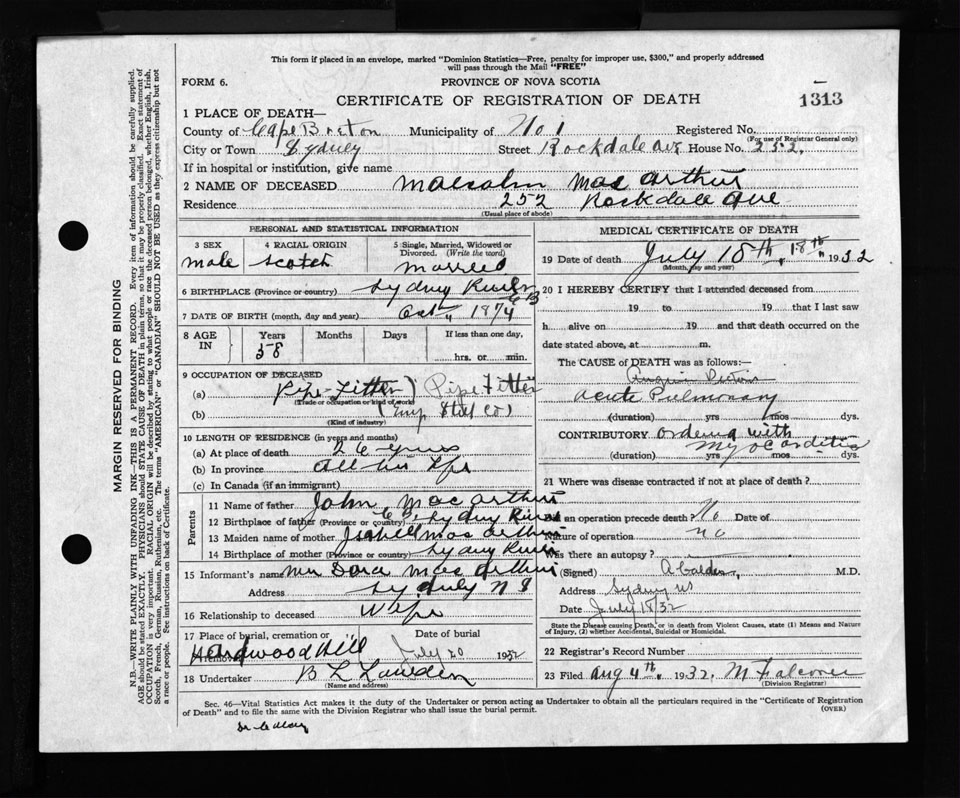 This form if placed in an envelope, marked "Dominion Statistics—Free, penalty for improper use, $300," and properly addressed
will pass through the Mail "FREE"
FORM 6.
PROVINCE OF NOVA SCOTIA
CERTIFICATE OF REGISTRATION OF DEATH
1313
1 PLACE OF DEATH—
County of Cape Breton Municipality of No 1 Registered No.
(For use of Registrar General only)
City or Town Sydney Street Rockdale Ave House No. 252.
If in hospital or institution, give name
2 NAME OF DECEASED Malcolm MacArthur
Residence 252 Rockdale Ave
(Usual place of abode)
PERSONAL AND STATISTICAL INFORMATION
3 SEX 4 RACIAL ORIGIN 5 Single, Married, Widowed or Divorced. (Write the word)
male Scotch Married
6 BIRTHPLACE (Province or country) Sydney River CB
7 DATE OF BIRTH (month, day and year) Oct 1874
8 AGE IN Years Months Days If less than one day,
58 hrs. or min.
9 OCCUPATION OF DECEASED
(a) Pipe-Fitter) Pipe Fitter
(Trade or occupation or kind of work)
(b) (Emp Steel Co)
(Kind of industry)
10 LENGTH OF RESIDENCE (in years and months)
(a) At place of death 26 yrs
(b) In province all his life
(c) In Canada (if an immigrant)
Parents
11 Name of father John MacArthur
12 Birthplace of father (Province or country) C B Sydney River
13 Maiden name of mother Isabell MacArthur
14 Birthplace of mother (Province or country) Sydney River
15 Informant's name Mrs Dora MacArthur
Address Sydney N S
16 Relationship to deceased Wife
17 Place of burial, cremation or Date of burial
Hardwood Hill July 20 1932
18 Undertaker B L Lowden
(Name and address)
MEDICAL CERTIFICATE OF DEATH
19 Date of death July 18th, 18th, 1932
(Month, day and year)
20 I HEREBY CERTIFY that I attended deceased from
19 to 19 that I last saw
h alive on 19 and that death occurred on the
date stated above, at m.
The CAUSE OF DEATH was as follows:—
Angina Pectoris
Acute Pulmonary
(duration) yrs mos dys.
CONTRIBUTORY Oedema with
Myocarditis
(duration) yrs mos dys.
21 Where was disease contracted if not at place of death?
Did an operation precede death? No Date of
Nature of operation no
Was there an autopsy?
(Signed) A Calder, M.D.
Address Sydney NS
Date July 18/32
State the Disease causing Death, or in death from Violent Causes, state (1) Means and Nature of Injury, (2) whether Accidental, Suicidal or Homicidal.
22 Registrar's Record Number
23 Filed Aug 4th, 1932. M Falconer
(Division Registrar)
Sec. 46—Vital Statistics Act makes it the duty of the Undertaker or person acting as Undertaker to obtain all the particulars required in the "Certificate of Registration
of Death" and to file the same with the Division Registrar who shall issue the burial permit.
(OVER)
MARGIN RESERVED FOR BINDING
N.B.—WRITE PLAINLY WITH UNFADING INK—THIS IS A PERMANENT RECORD. Every item of information should be carefully supplied.
AGE should be stated EXACTLY. PHYSICIANS should STATE CAUSE OF DEATH in plain terms, so that it may be properly classified. Exact statement of
OCCUPATION is very important. RACIAL ORIGIN will be described by stating to what people or race the deceased person belonged, whether English, Irish,
Scotch, French, German, Russian, Ruthenian, etc. The terms "AMERICAN" or "CANADIAN" SHOULD NOT BE USED as they express citizenship but not
a race or people. See instructions on back of Certificate.